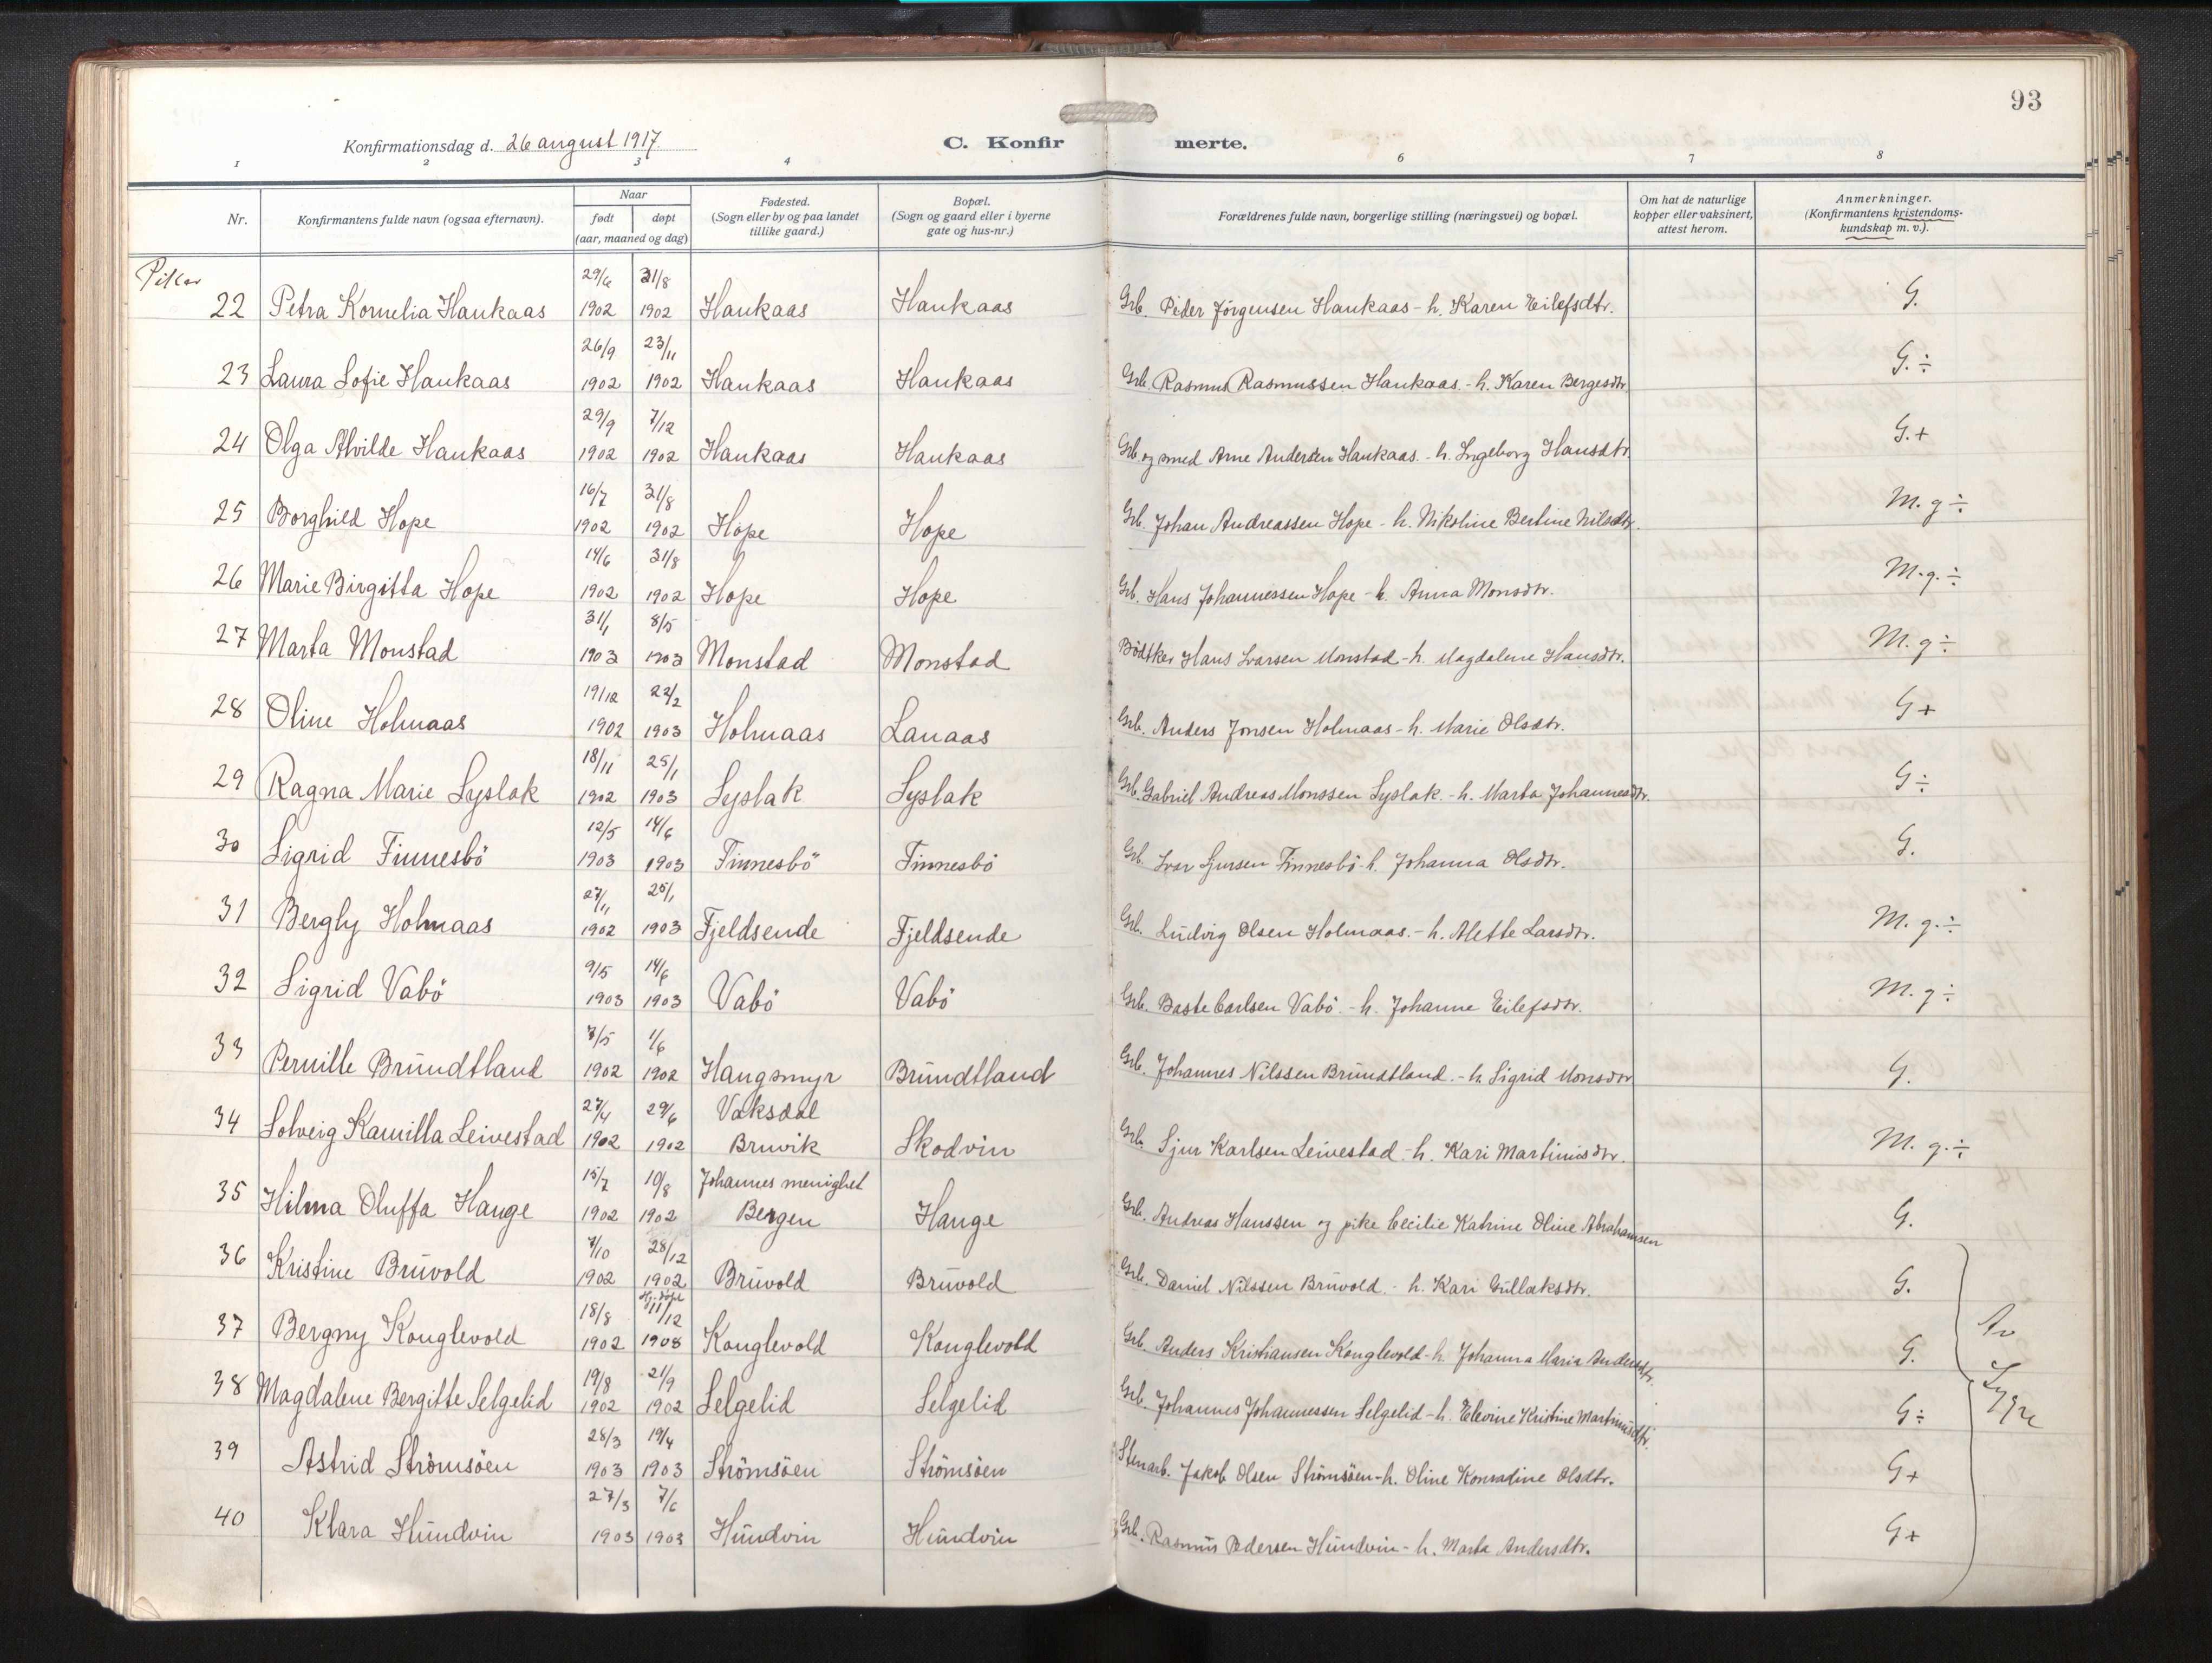 93
Konfirmationsdag d. 26 august 1917.
C. Konfir merte.
1 2 3 4 6 7 8
Nr. Konfirmantens fulde navn (ogsaa efternavn). Naar født døpt (aar, maaned og dag) Fødested. (Sogn eller by og paa landet tillike gaard.) Bopæl. (Sogn og gaard eller i byerne gate og hus-nr.) Forældrenes fulde navn, borgerlige stilling (næringsvei) og bopæl. Om hat de naturlige kopper eller vaksinert, attest herom. Anmerkninger. (Konfirmantens kristendoms-kundskap m. v.).
Piker
22 Petra Kornelia Haukaas 29/6 1902 31/8 1902 Haukaas Haukaas Grb. Peder Jörgensen Haukaas - h. Karen Eilefsdtr. G.
23 Laura Sofie Haukaas 26/9 1902 23/11 1902 Haukaas Haukaas Grb. Rasmus Rasmussen Haukaas. - h. Karen Bergesdtr. G. ÷
24 Olga Alvilde Haukaas 29/9 1902 7/12 1902 Haukaas Haukaas Grb. og smed Arne Andersen Haukaas. - h. Ingeborg Hansdtr. G. +
25 Borghild Hope 16/7 1902 31/8 1902 Hope Hope Grb. Johan Andreassen Hope - h. Nikoline Bertine Nilsdtr. M. g ÷
26 Marie Birgitta Hope 14/6 1902 31/8 1902 Hope Hope Grb. Hans Johannessen Hope - h. Anna Monsdtr. M. g. ÷
27 Marta Monstad 31/1 1903 8/5 1903 Monstad Monstad Bödtker Hans Ivarsen Monstad - h. Magdalene Hansdtr. M. g ÷
28 Oline Holmaas 19/12 1902 22/2 1903 Holmaas Lanaas Grb. Anders Jonsen Holmaas - h. Marie Olsdtr. G +
29 Ragna Marie Syslak 18/11 1902 25/1 1903 Syslak Syslak Grb. Gabriel Andreas Monssen Syslak. - h. Marta Johannesdtr. G ÷
30 Sigrid Finnesbö 12/5 1903 14/6 1903 Finnesbö Finnesbö Grb. Ivar Sjursen Finnesbö - h. Johanna Olsdtr. G.
31 Bergly Holmaas 27/11 1902 25/1 1903 Fjeldsende Fjeldsende Grb. Ludvig Olsen Holmaas. - h. Alette Larsdtr. M. g. ÷
32 Sigrid Vabö 9/5 1903 14/6 1903 Vabö Vabö Grb. Baste Carlsen Vabö. - h. Johanne Eilefsdtr. M. g ÷
33 Pernille Brundtland 3/5 1902 1/6 1902 Haugsmyr Brundtland Grb. Johannes Nilssen Brundtland. - h. Sigrid Monsdtr G.
34 Solveig Kamilla Leivestad 27/4 1902 29/6 1902 Vaksdal Bruvik Skodvin Grb. Sjur Karlsen Leivestad. - h. Kari Martinusdtr. M. g. ÷
35 Hilma Oluffa Hauge 15/7 1902 10/8 1902 Johannes menighet Bergen Hauge Grb. Andreas Hanssen og pike Cecilie Katrine Oline Abrahamsen G.
36 Kristine Bruvold 7/10 1902 28/12 1902 Bruvold Bruvold Grb. Daniel Nilssen Bruvold. - h. Kari Gullaksdtr. G.
37 Bergny Konglevold 18/8 1902 Hj. döpt 11/12 1908 Konglevold Konglevold Grb. Anders Kristiansen Konglevold - h. Johanna Maria Andersdtr. G.
38 Magdalene Bergitte Selgelid 19/8 1902 21/9 1902 Selgelid Selgelid Grb. Johannes Johannessen Selgelid - h. Elevine Kristine Martinusdtr. G ÷
39 Astrid Strömsöen 28/3 1903 19/4 1903 Strömsöen Strömsöen Stenarb. Jakob Olsen Strömsöen - h. Oline Konradine Olsdtr. G +
40 Klara Hundvin 27/3 1903 7/6 1903 Hundvin Hundvin Grb. Rasmus Pedersen Hundvin - h. Marta Andersdtr. G +
Av
Sygre